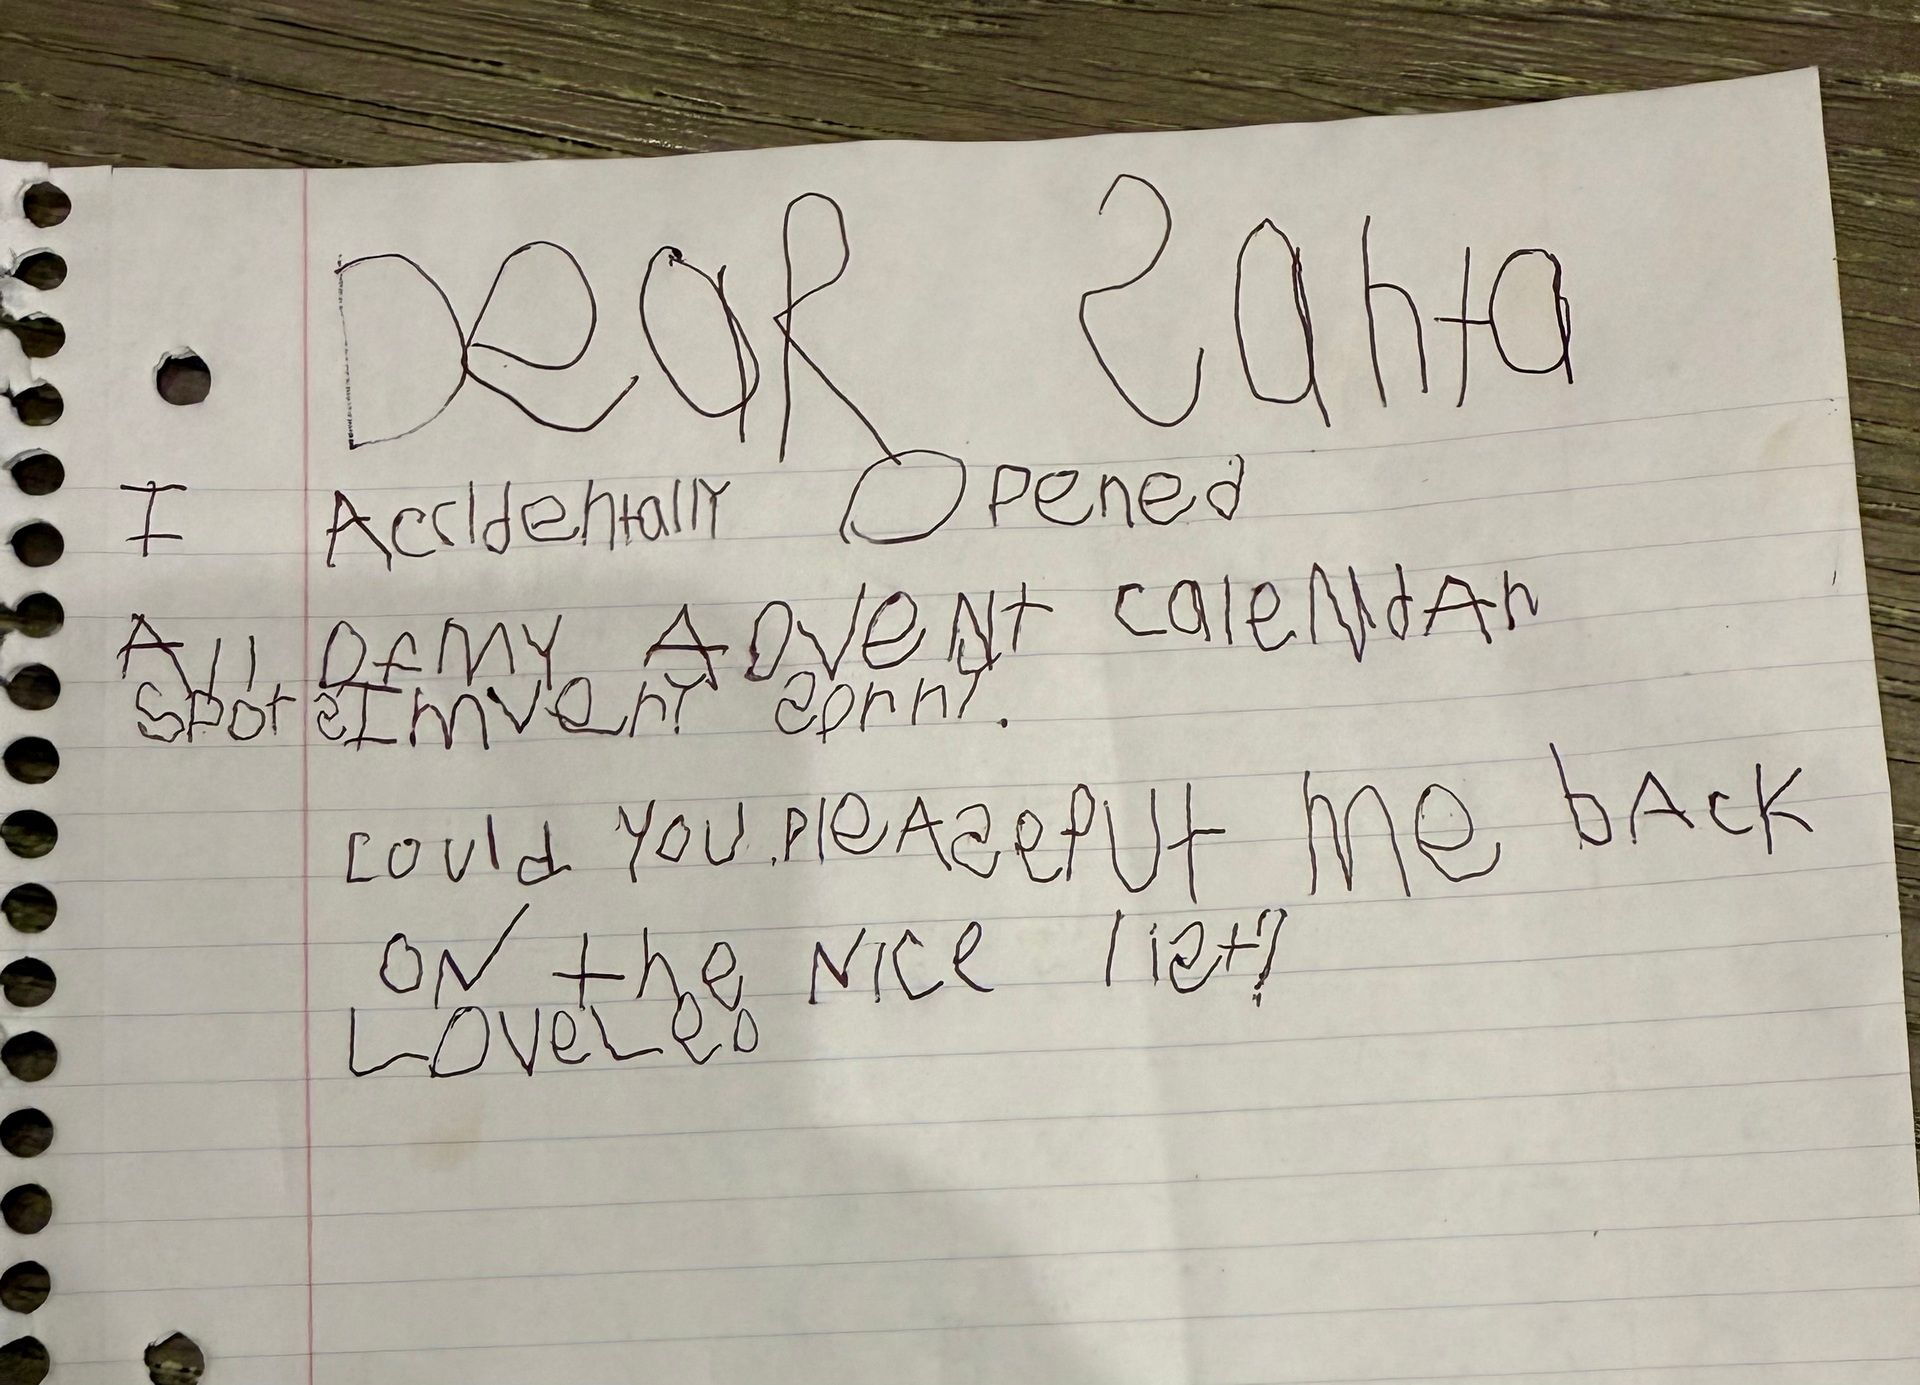 Dear Santa
I Accidentally Opened
All Of my Advent calendar
spots Im very sorry.
could you please put me back
oN the Nice list?
Love Leo